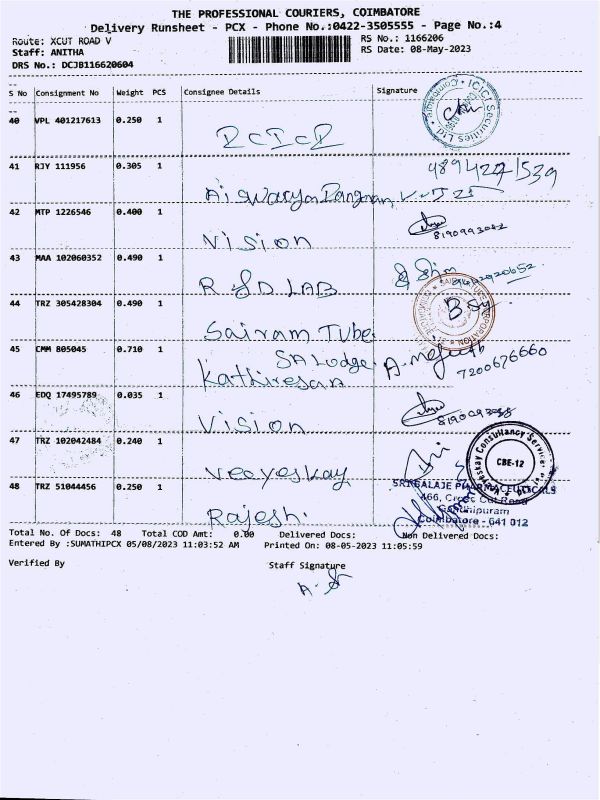 THE PROFESSIONAL COURIERS, COIMBATORE
Delivery Runsheet - PCX - Phone No.:0422-3505555 - Page No.:4
Route: XCUT ROAD V
RS No.: 1166206
Staff: ANITHA
RS Date: 08-May-2023
DRS No.: DCJB116620604
S No Consignment No Weight PCS Consignee Details Signature
40 VPL 401217613 0.250 1
ICICI
ICICI Securities Ltd
41 RJY 111956 0.305 1
42 MTP 1226546 0.400 1
Vision
43 MAA 102060352 0.490 1
R & D LAB
44 TRZ 305428304 0.490 1
Sairam Tube
45 CMM 805045 0.710 1
SA Lodge
Kathiresan
7200676660
46 EDQ 17495789 0.035 1
Vision
47 TRZ 102042484 0.240 1
Veeyeskay
Veeyessay Consultancy Services
CBE-12
48 TRZ 51044456 0.250 1
Rajesh.
SRI BALAJE PHARMACEUTICALS
466, Cross Cut Road
Gandhipuram
Coimbatore - 641 012
Total No. Of Docs: 48 Total COD Amt: 0.00 Delivered Docs: Non Delivered Docs:
Entered By :SUMATHIPCX 05/08/2023 11:03:52 AM Printed On: 08-05-2023 11:05:59
Verified By Staff Signature